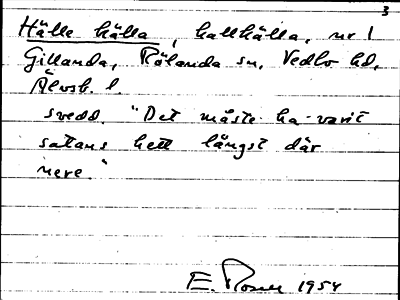 3
Hälle källa, kallkälla, nr 1
Gillanda, Rölanda sn, Vedbo hd,
Älvsb. l.
svedd. "Det måste ha varit
satans hett längst där
nere."
E. 1954